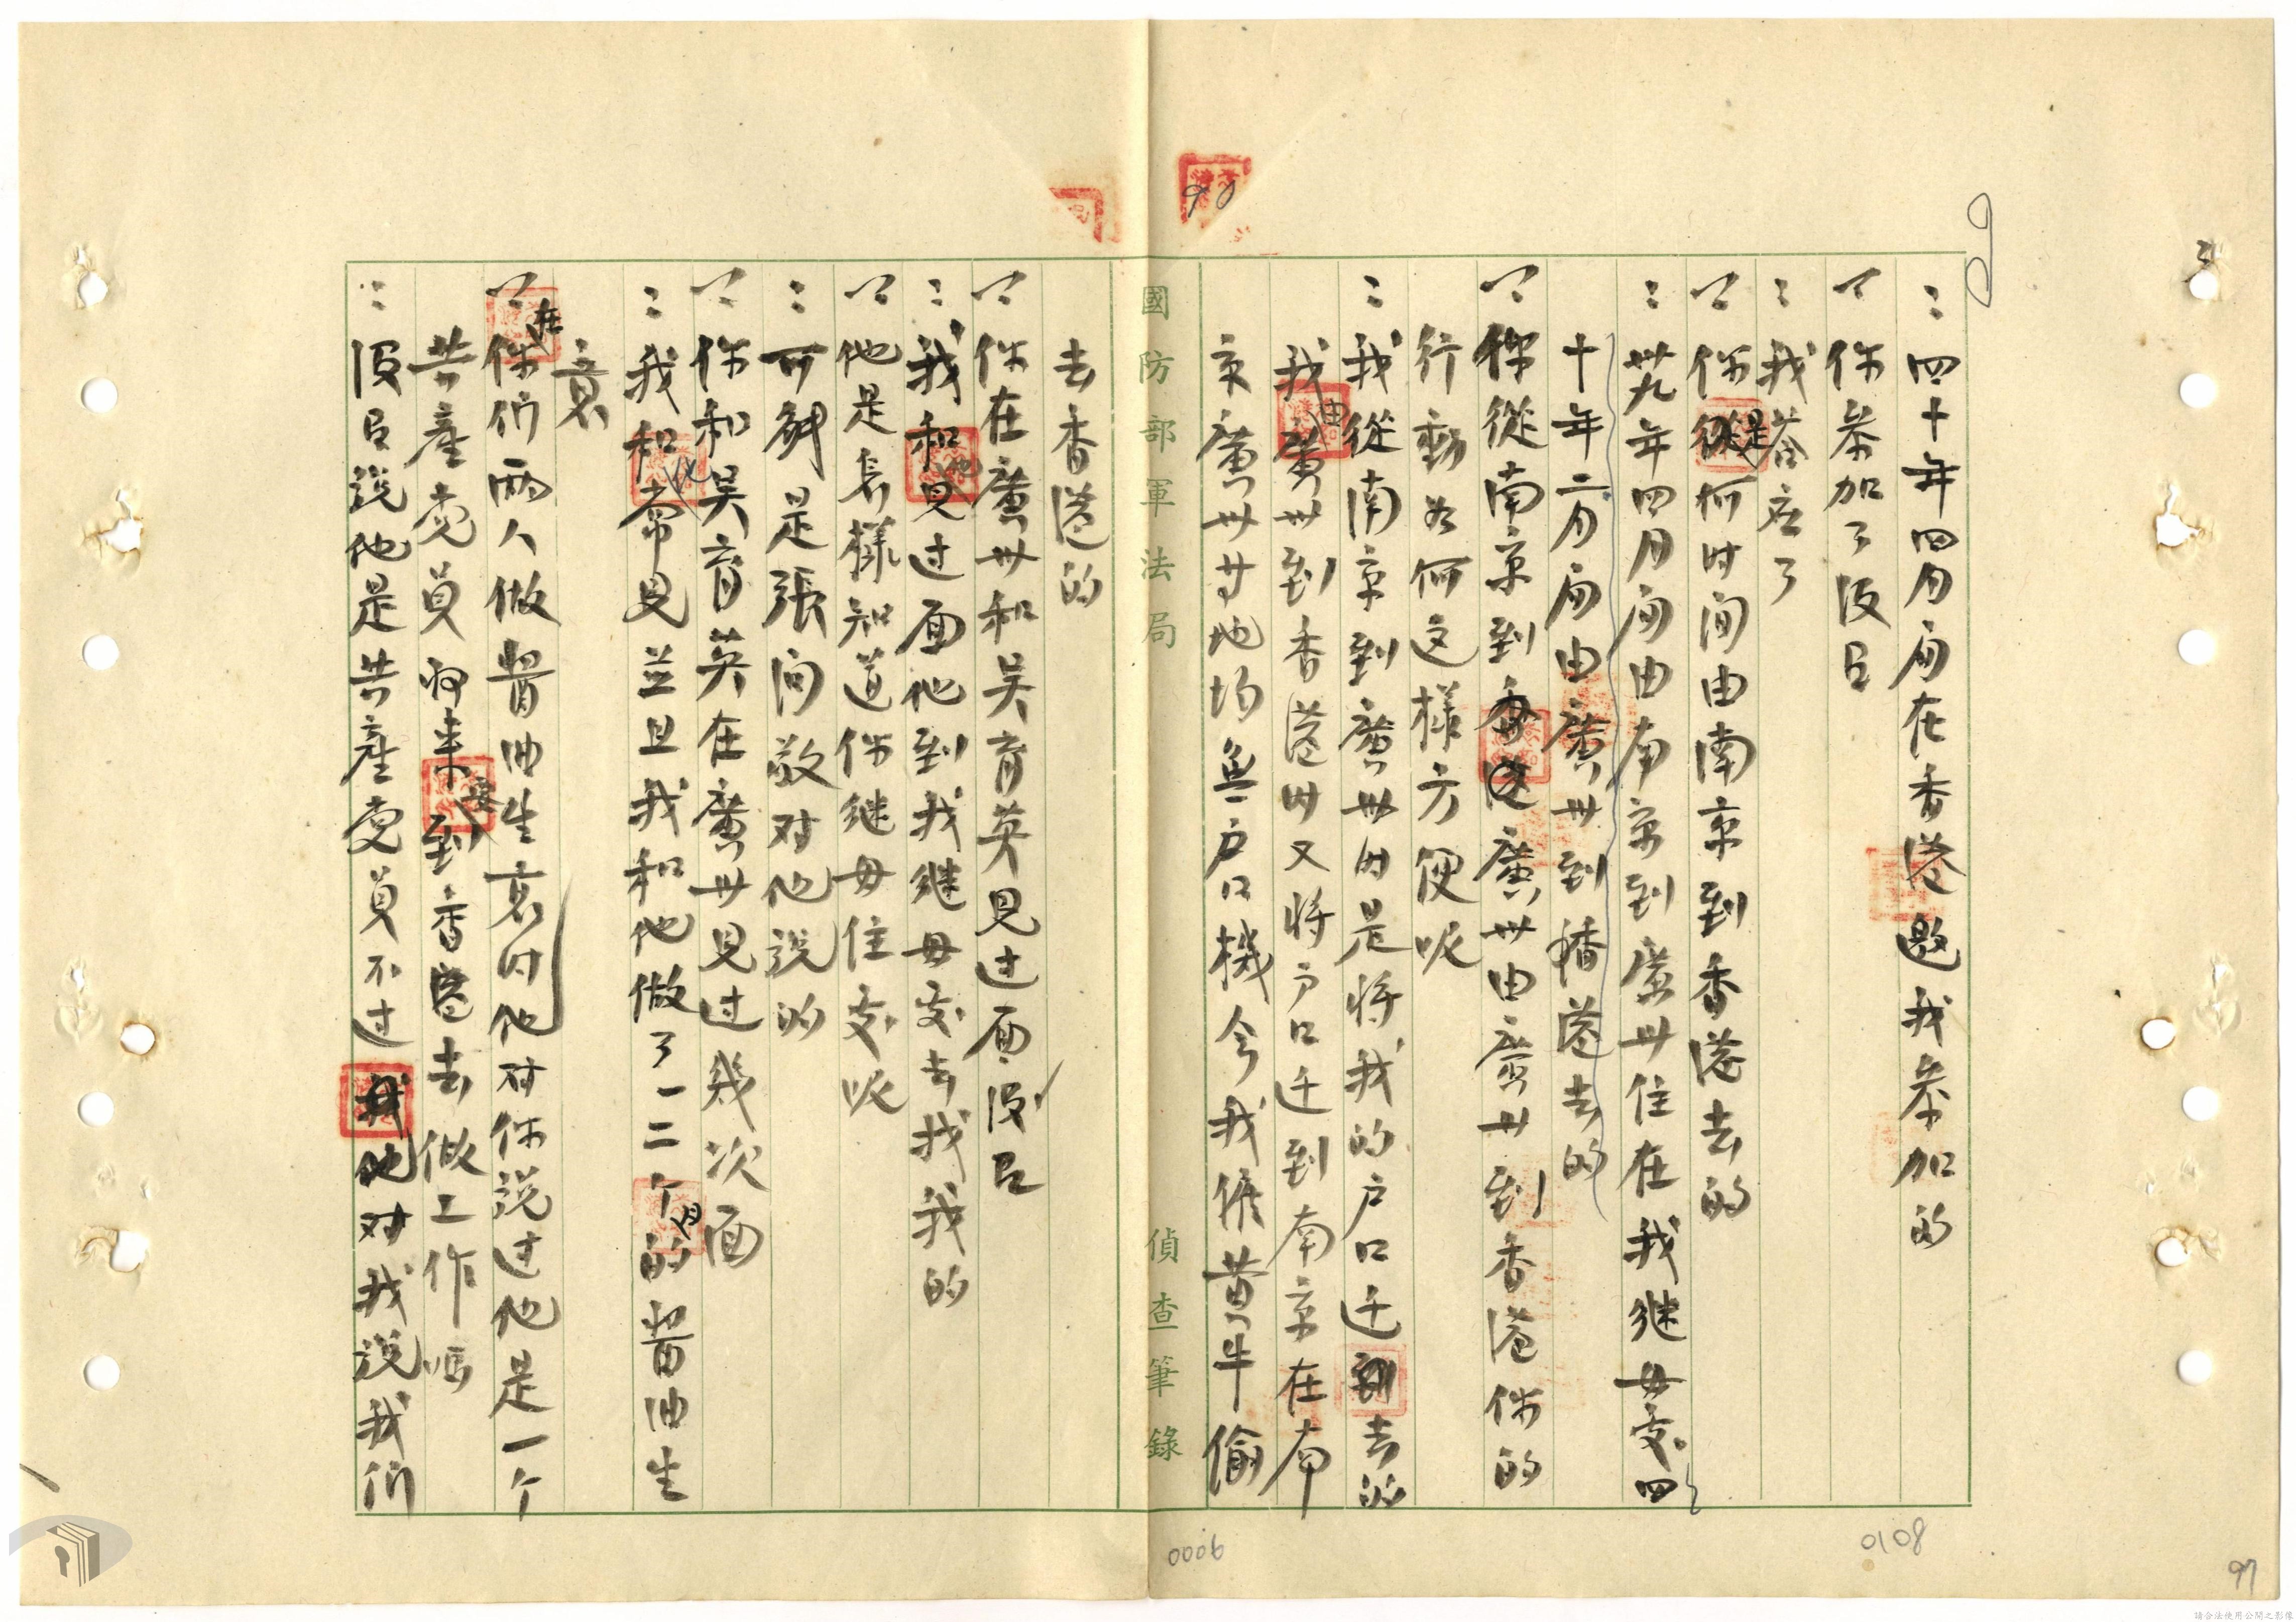 : 四十年四月间在香港邀我参加的
问 你参加了沒有
: 我答应了
问 你是何时间由南京到香港去的
: 卅九年四月间由南京到廣州住在我继母家四
十年二月间由廣州到香港去的
问 你從南京到廣州由廣州到香港你的
行動为何这樣方便呢
: 我從南京到廣州时是将我的户口迁去的
我由廣州到香港时又将户口迁到南京在南
京廣州廿地均無户口機会我候黄牛偷
國防部軍法局 偵查筆錄
去香港的
问 你在廣州和吴育英見过面沒有
: 我和他見过面他到我继母家去找我的
问 他是怎樣知道你继母住家呢
: 可能是張向敬对他说的
问 你和吴育英在廣州見过幾次面
: 我和他常見並且我和他做了一二个月的醤油生
意
问 在你们兩人做醤油生意时他对你说过他是一个
共產党員将来要到香港去做工作吗
: 沒有說他是共產党員不过他对我說我们
90
0006
0108
97
請合法使用公開之影像